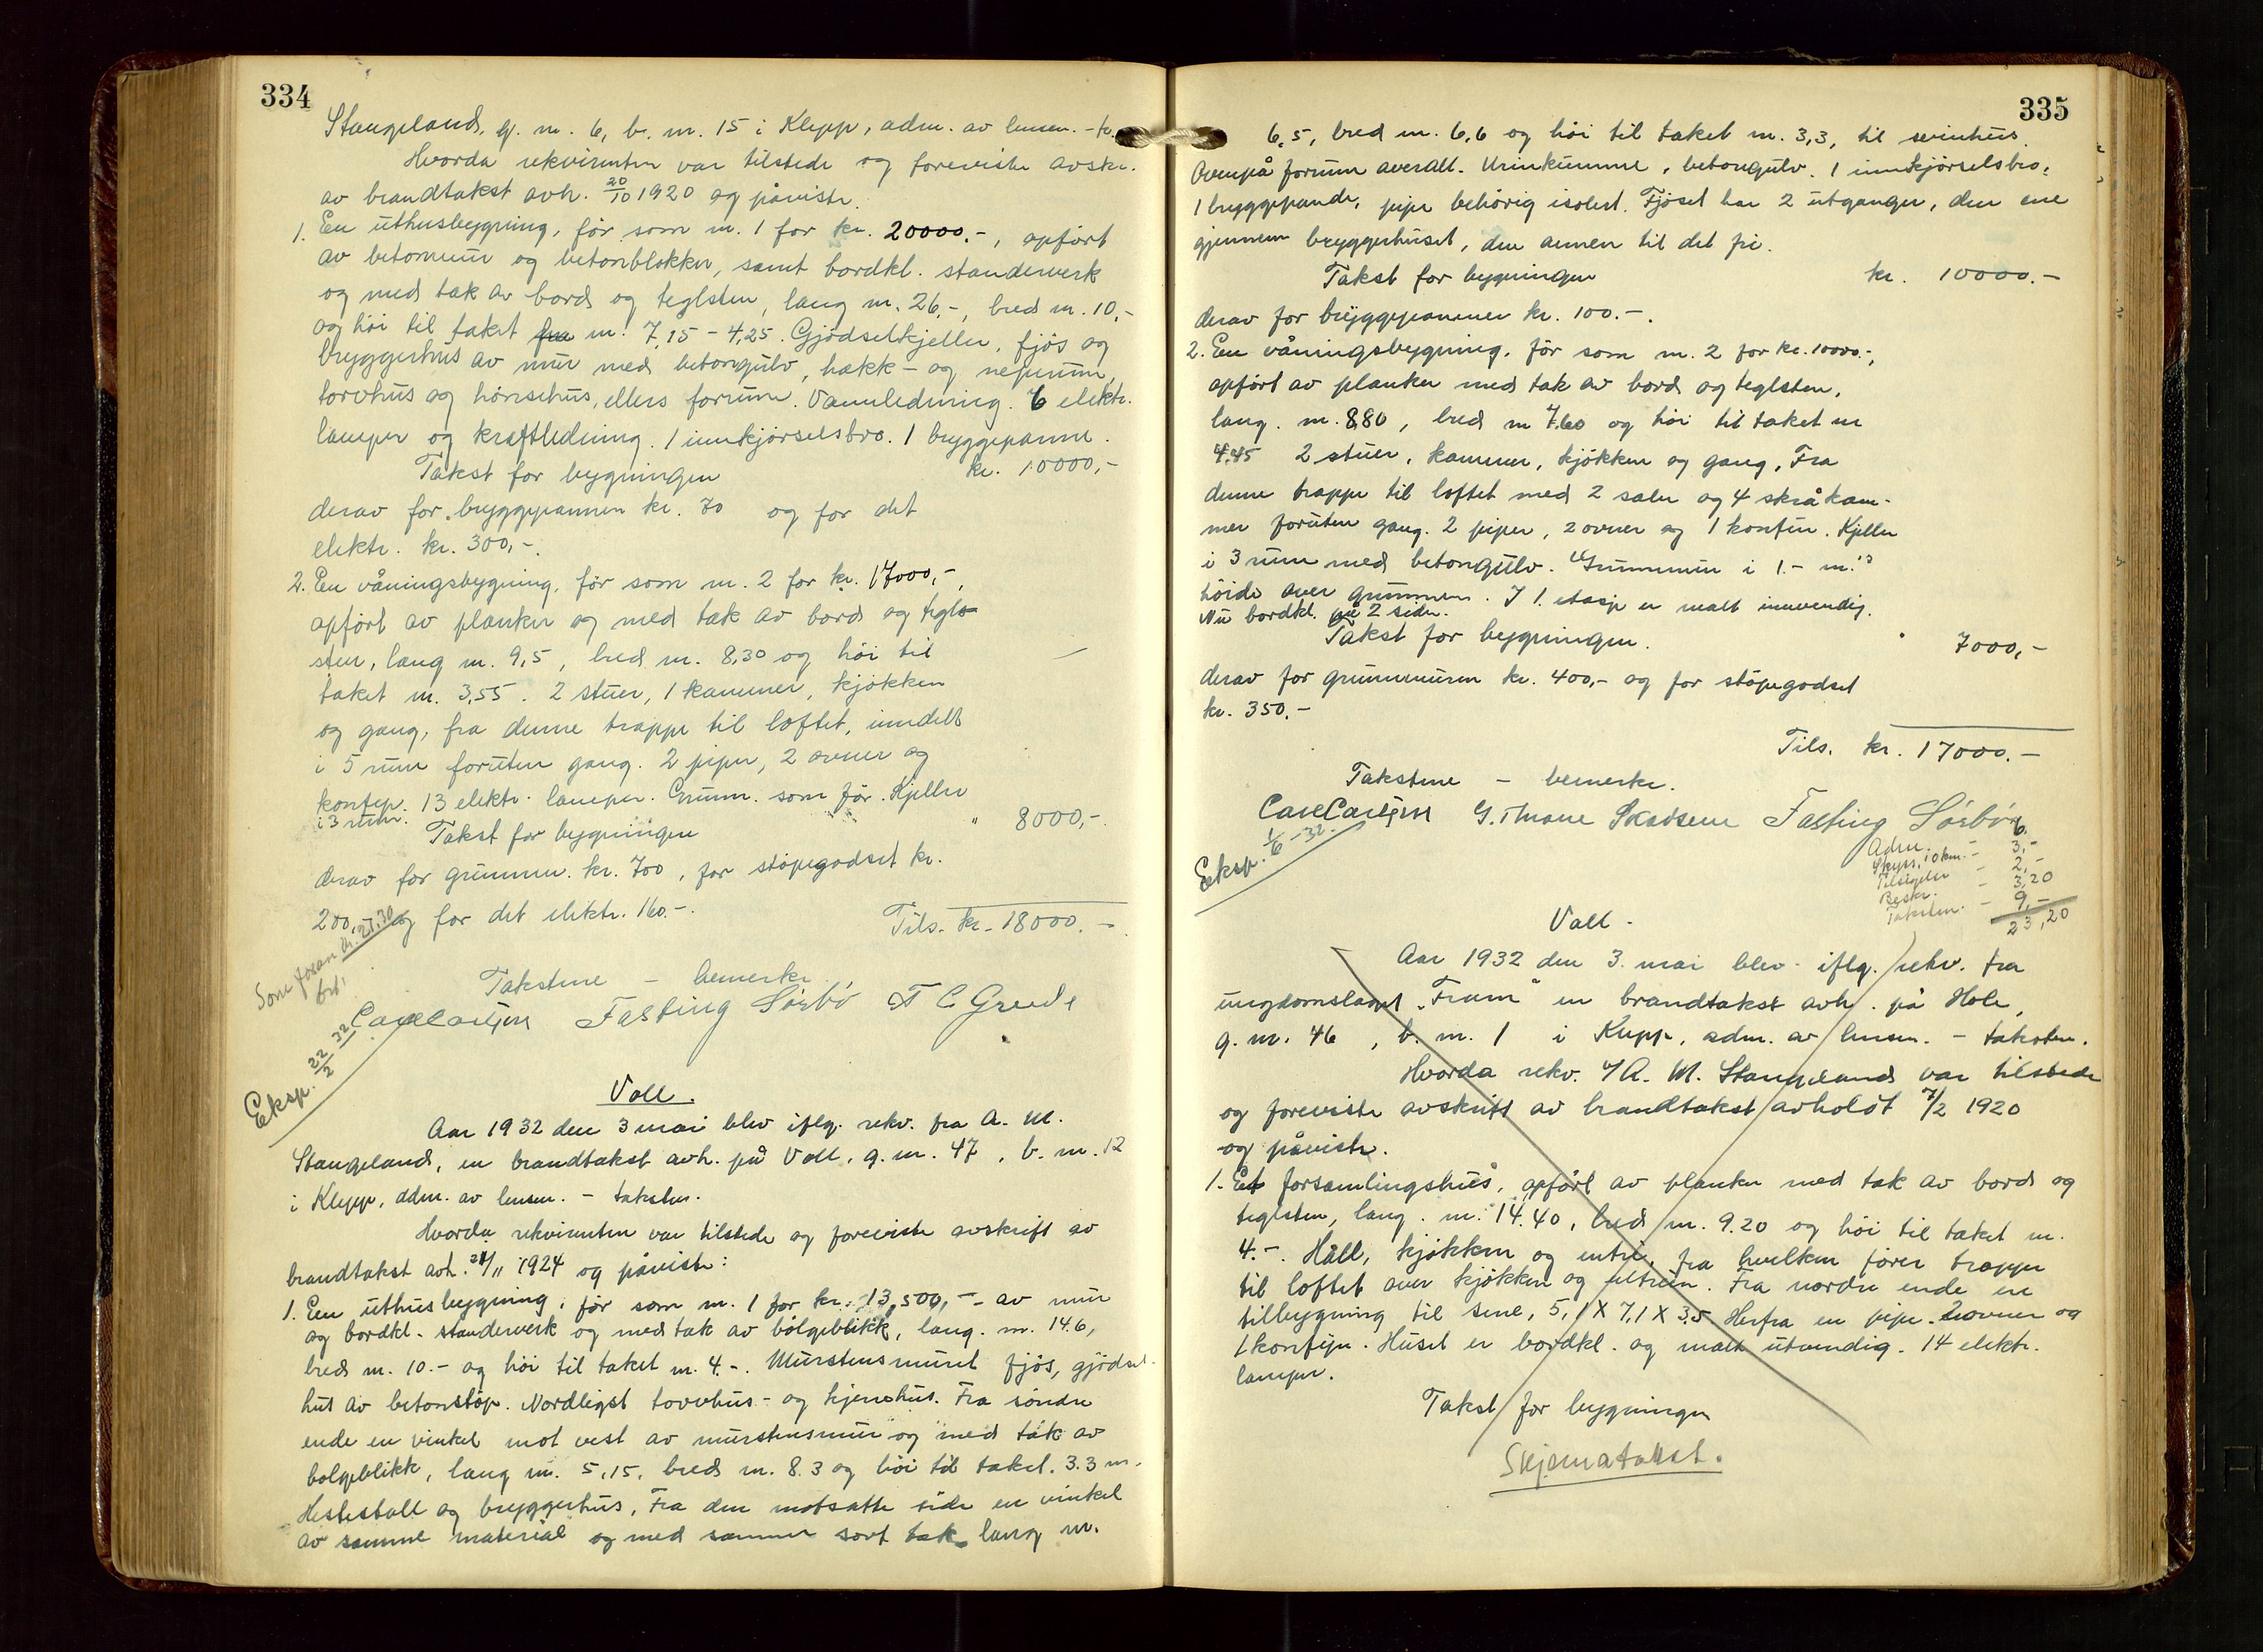 334
Stangeland, g. nr. 6, br. nr. 15 i Klepp, adm. av lensm. - te.
Hvorda rekvirenten var tilstede og foreviste avskr.
av brandtakst avh. 20/10 1920 og påviste.
1. En uthusbygning, før som nr. 1 for kr. 20000.-, opført
av betonmur og betonblokker, samt bordkl. standerverk
og med tak av bord og teglsten, lang m. 26,-, bred m. 10,-
og høi til taket fra m. 7,15 - 4,25. Gjødselkjeller, fjøs og
bryggerhus av mur med betongulv, hakk- og neperum,
torvhus og hønsehus, ellers forrum. Vannledning. 6 elektr.
lamper og kraftledning. 1 innkjørselsbro. 1 bryggepanne.
Takst for bygningen kr. 10000,-
derav for bryggepannen kr. 70 og for det
elektr. kr. 300,-.
2. En våningsbygning, før som nr. 2 for kr. 17000,-,
opført av planker og med tak av bord og tegl-
sten, lang m. 9,5, bred m. 8,30 og høi til
taket m. 3,55. 2 stuer, 1 kammer, kjøkken
og gang, fra denne trappe til loftet, inndelt
i 5 rum foruten gang. 2 piper, 2 ovner og
komfyr. 13 elektr. lamper. Grunm. som før. Kjeller
i 3 rum.
Takst for bygningen " 8000,-
derav for grunmur. kr. 700, for støpegodset kr.
200,- og for det elektr. 160.-.
Tils. kr. 18000.-
Som foran kr. 27,30
bet.
Takstene - bemerke.
Carl Carlsen Fasting Sørbø T C Grude
Eksp. 22/2 32
Voll.
Aar 1932 den 3 mai blev iflg. rekv. fra A. M.
Stangeland, en brandtakst avh. på Voll, g. nr. 47, b. nr. 12
i Klepp, adm. av lensm. - taksten.
Hvorda rekvirenten var tilstede og foreviste avskrift av
brandtakst avh. 21/11 1924 og påviste:
1. En uthusbygning, før som nr. 1 for kr. 13,500,- - av mur
og bordkl. standerverk og med tak av bølgeblikk, lang. m. 14.6,
bred m. 10.- og høi til taket m. 4.-. Murstensmuret fjøs, gjødsel-
hus av betonstøp. Nordligst torvhus- og kjerrehus. Fra søndre
ende en vinkel mot vest av murstensmur og med tak av
bølgeblikk, lang m. 5,15, bred m. 8.3 og høi til taket. 3.3 m.
Hestestall og bryggerhus. Fra den motsatte side en vinkel
av samme material og med samme sort tak lang m.
335
6,5, bred m. 6,6 og høi til taket m. 3,3, til svinhus.
Ovenpå forrum overalt. Urinkumme, betongulv. 1 innkjørselsbro,
1 bryggepande, pipe behørig isolert. Fjøset har 2 utganger, den ene
gjennem bryggerhuset, den annen til det fri.
Takst for bygningen kr. 10000.-
derav for bryggepannen kr. 100.-.
2. En våningsbygning, før som nr. 2 for kr. 10000.-,
opført av planker med tak av bord og teglsten,
lang. m. 8,80, bred m 7,60 og høi til taket m
4,45 2 stuer, kammer, kjøkken og gang, Fra
denne trappe til loftet med 2 saler og 4 skråkam-
mer foruten gang. 2 piper, 2 ovner og 1 komfur. Kjeller
i 3 rum med betongulv. Grunnmur i 1.- m.s
høide over grunnen. I 1. etasje er malt innvendig.
Nu bordkl. på 2 sider.
Takst for bygningen. " 7000,-
derav for grunnmuren kr. 400,- og for støpegodset
kr. 350.-
Tils. kr. 17000.-
Takstene - bemerke.
Carl Carlsen G. Thrane Skadsem Fasting Sørbø
Eksp. 1/6 -32.
Adm. 6.
Skyss. 10 km. - 3,-
Tilsigelse - 2,-
Beskr. - 3,20
Taksten. - 9,-
23,20
Voll -
Aar 1932 den 3. mai blev iflg. rekv. fra
ungdomslaget "Fram" en brandtakst avh. på Hole,
g. nr. 46, b. nr. 1 i Klepp, adm. av lensm. - taksten.
Hvorda rekv. v/ A. M. Stangeland var tilstede
og foreviste avskrift av brandtakst avholdt 7/2 1920
og påviste.
1. Et forsamlingshus, opført av planker med tak av bord og
teglsten, lang. m. 14.40, bred m. 9.20 og høi til taket m.
4.-. Hall, kjøkken og entré, fra hvilken fører trappe
til loftet over kjøkken og entreen. Fra nordre ende en
tilbygning til sene, 5,1 X 7,1 X 3,5 Herfra en pipe. 2 ovner og
1 komfyr. Huset er bordkl. og malt utvendig. 14 elektr.
lamper.
Takst for bygningen
Skjematakst.